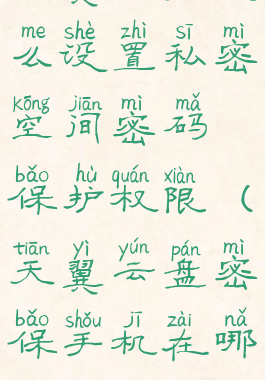 me shè zhì sī mì
么设置私密
kōng jiān mì mǎ
空间密码
bǎo hù quán xiàn
保护权限（
tiān yì yún pán mì
天翼云盘密
bǎo shǒu jī zài nǎ
保手机在哪